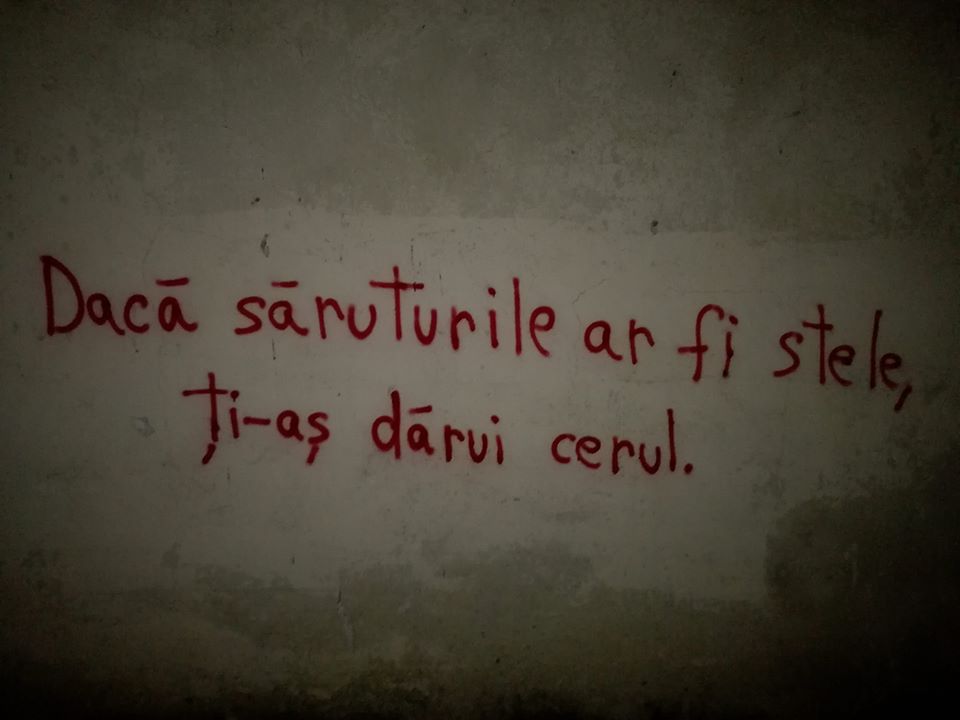 Dacă săruturile ar fi stele,
ți-aș dărui cerul.